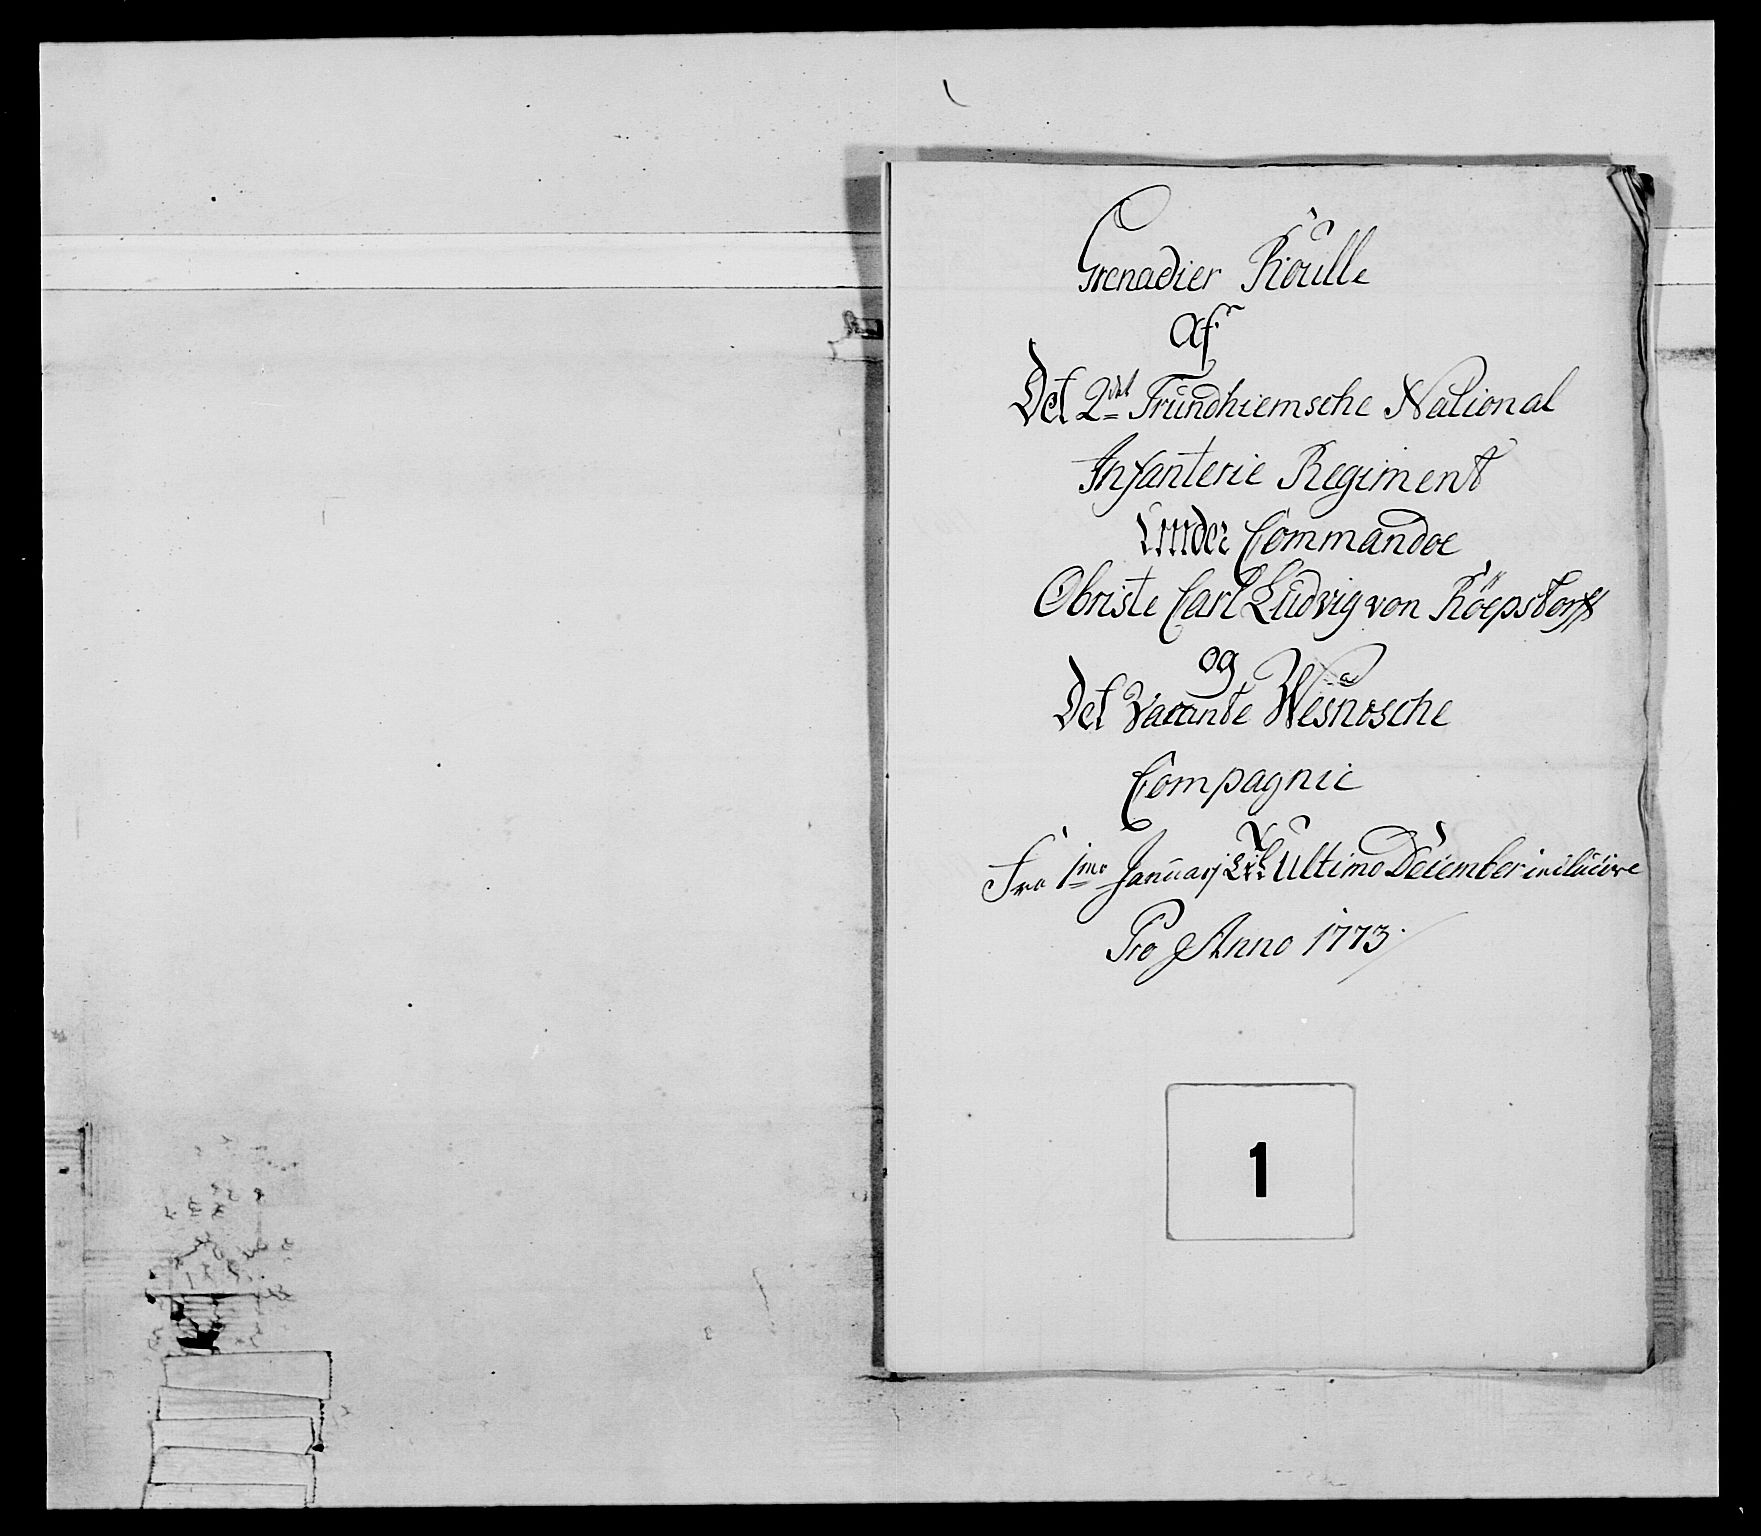 Grenadier Roulle
af
Det 2det Trundhiemsche National
Infanterie Regiment
Under Commandoe
Obriste Carl Ludvig von Röepstorff
og
Det Vacante Wesnesche
Compagnie
Fra 1mo Januarj til Ultimo December inclusive
Pro Anno 1773.
1